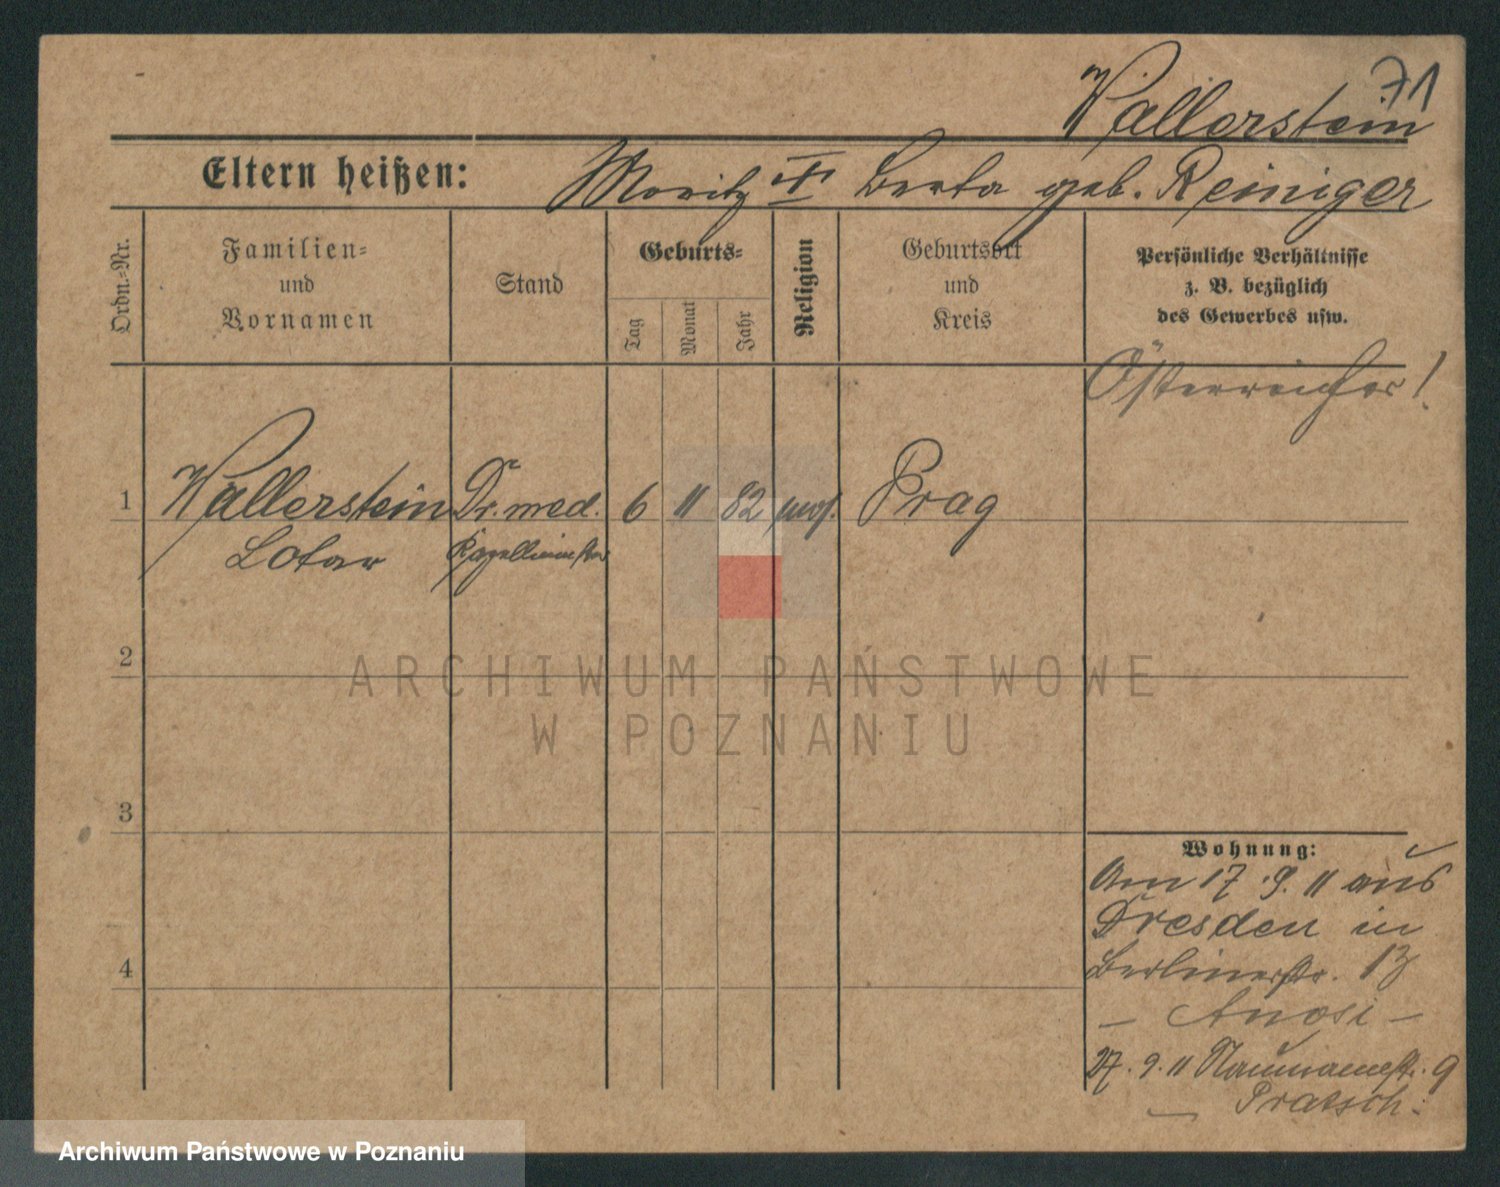 71
Wallerstein
Eltern heißen: Moritz † Berta geb. Reiniger
Ordn.-Nr.
Familien-
und
Vornamen
Stand
Geburts-
Tag
Monat
Jahr
Religion
Geburtsort
und
Kreis
Persönliche Verhältnisse
z. B. bezüglich
des Gewerbes usw.
Österreicher!
1 Wallerstein Dr. med. 6 11 82 mos. Prag
Lotar Kapellmeister
2
3
4
Wohnung:
Am 17.9.11 aus
Dresden in
Berlinerstr. 13
– –
27.9.11 Naumannstr. 9
– Pratsch.
ARCHIWUM PAŃSTWOWE
W POZNANIU
Archiwum Państwowe w Poznaniu